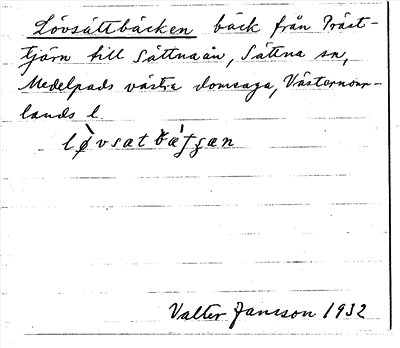 Lövsättbäcken bäck från Präst-
tjärn till Sättnaån, Sättna sn,
Medelpads västra domsaga, Västernorr-
lands l.
lø̀vsætbæ̀ʃʒæn
Valter Jansson 1932